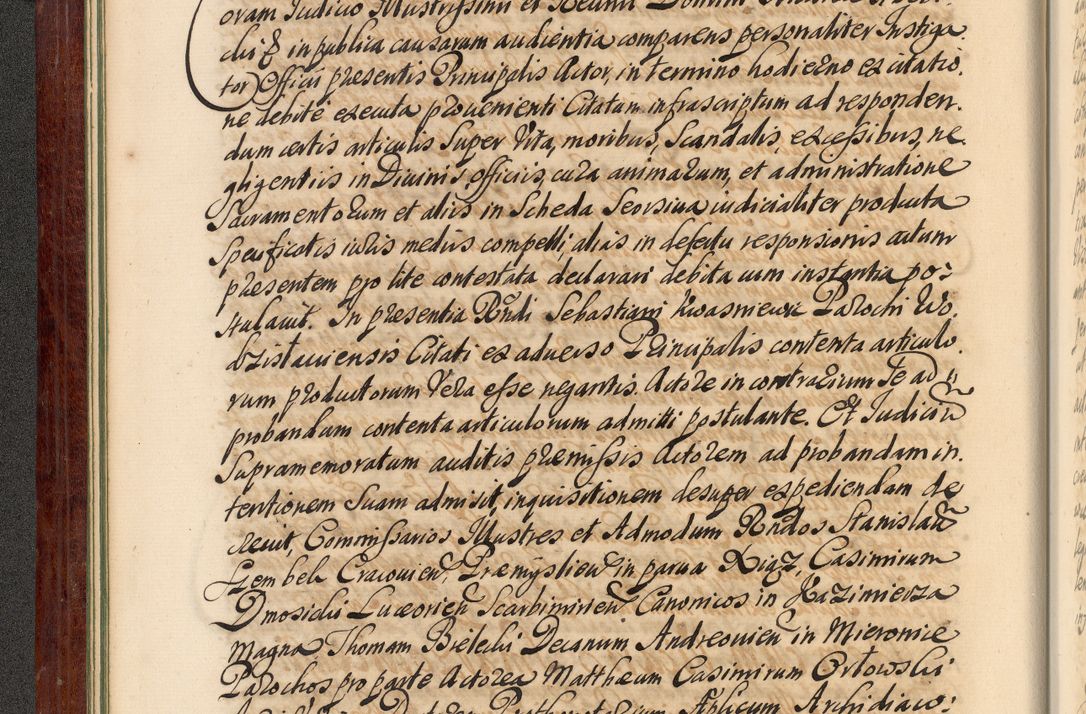 oram Iudicio Illustrissimi et Reverendi Domini
chi & in publica causarum audientia comparens personaliter Instiga.
tor Officii præsentis Principalis Actor, in termino hodierno ex citatio.
ne debite executa provenienti Citatum infrascriptum ad responden.
dum certis articulis Super Vita, moribus, Scandalis, excessibus, ne
gligentiis in Divinis officiis, cura animarum, et administratione
Sacramentorum et aliis in Scheda Seorsiva iudicialiter producta
Specificatis iuris mediis compelli; alias in defectu responsionis actum
præsentem pro lite contestata declarari debita cum instantia po:
stulavit. In præsentia Rndi Sebastiani Kwasniewic Parochi Wo.
dzislaviensis Citati ex adverso Principalis contenta articulo.
rum productorum Vera esse negantis. Actore in contrarium Se ad
probandum contenta articulorum admitti postulante. Et Iudiciũ
Supramemoratum auditis præmissis Actorem ad probandam in.
tentionem Suam admisit, inquisitionem desuper expediendam de
crevit, Commissarios Illustres et Admodum Rndos Stanislaũ
Szembek Cracovien, Præmyslien in parva Xiąz, Casimirum
Dmosicki Luceorien Scarbimirien Canonicos in Kazimierza
Magna Thomam Bielecki Decanum Andreovien in Mieronice
Parochos pro parte Actorea Matthæum Casimirum Orłowski
Aplicum Archidiaco: